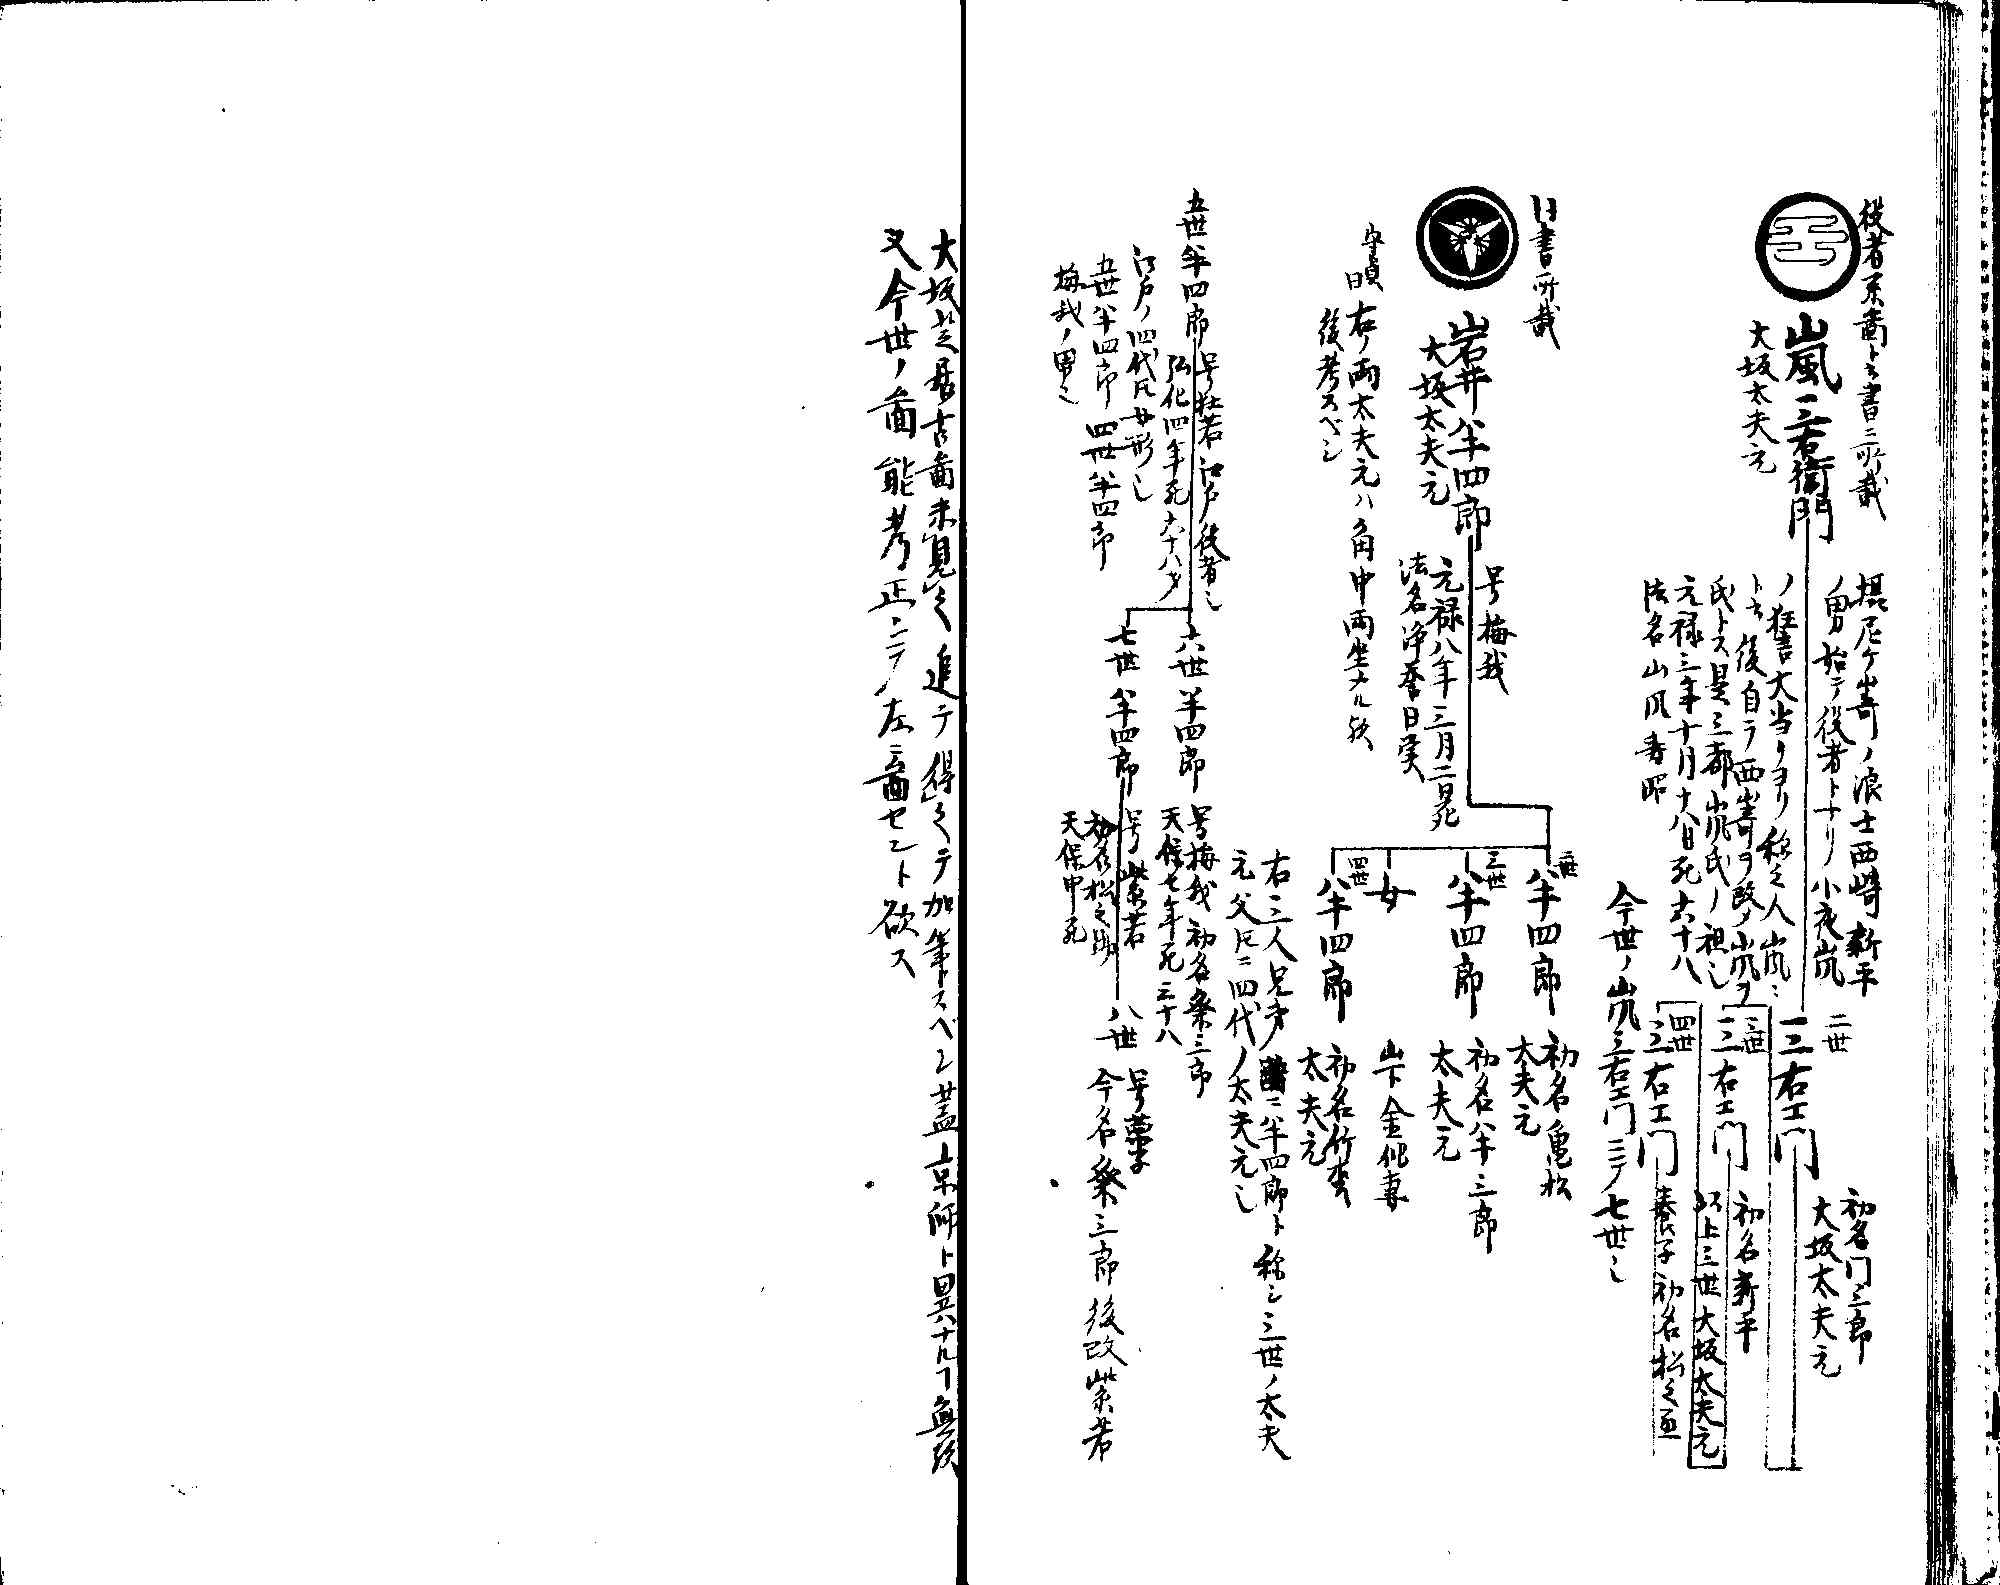 役者系圖ト云書ニ所載
嵐三右衛門
大坂太夫元
摂尼ケ嵜ノ浪士西崎新平
ノ男始テ役者トナリ小夜嵐
ノ狂言大当リヨリ称之人嵐ニ
ト云後自ラ西嵜ヲ改メ嵐ヲ
氏トス是三都嵐氏ノ祖也
元禄三年十月十八日死六十八
法名
二世
三右エ門
初名門三郎
大坂太夫元
三世
三右エ門
初名新平
以上三世大坂太夫元
四世
三右エ門
養子初名松之丞
今世ノ嵐三右エ門ニテ七世也
同書所載
岩井半四郎
大坂太夫元
号梅我
元禄八年三月二日死
法名浄誉日実
二世
半四郎
初名亀松
太夫元
三世
半四郎
初名半三郎
太夫元
女
山下金作妻
四世
半四郎
初名竹松
太夫元
右三人兄弟ニ半四郎ト称シ三世ノ太夫
元父トモニ四代ノ太夫元也
守貞曰右ノ両太夫元ハ角中両坐ナル歟
後考スベシ
五世半四郎
号杜若江戸役者也
弘化四年死六十八才
江戸ノ四代トモ女形也
五世半四郎四世半四郎
梅我ノ男也
六世半四郎
号梅我初名粂三郎
天保七年死三十八
七世半四郎
号紫若
初名松之助
天保中死
八世
今名粂三郎後改紫若
大坂芝居古圖未見之追テ得之テ加筆トスベシ蓋京師ト異ナルコ無歟
又今世ノ圖能考正シテ左ニ圖セント欲ス